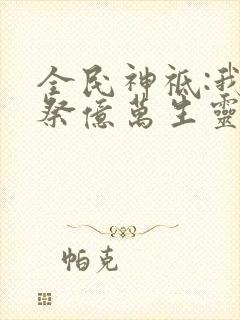 全民神祗:我
祭億萬生靈
帕克